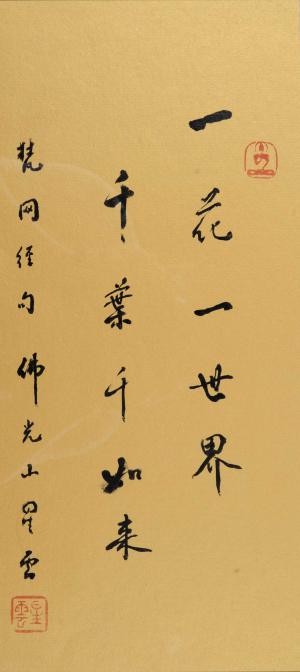 一花一世界
千葉千如来
梵网经句 佛光山星雲
星雲